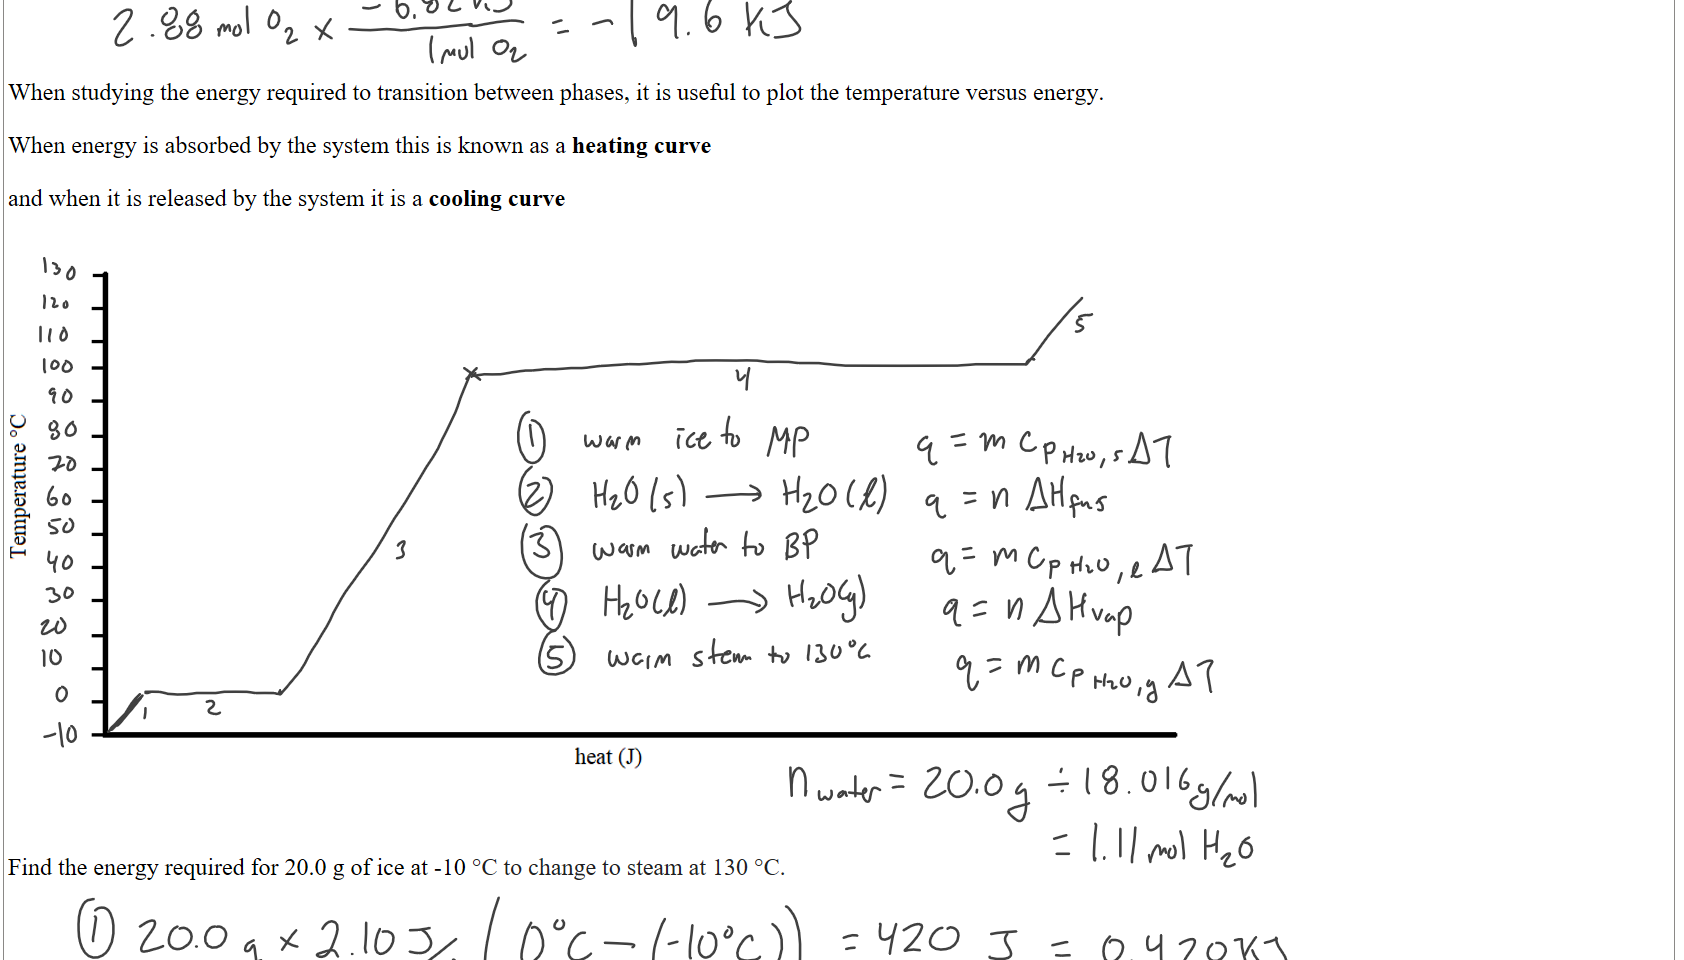 2.88 mol O2 × -6.82 KJ / 1 mol O2 = -19.6 KJ
When studying the energy required to transition between phases, it is useful to plot the temperature versus energy.
When energy is absorbed by the system this is known as a heating curve
and when it is released by the system it is a cooling curve
130
120
110
100
90
80
70
60
50
40
30
20
10
0
-10
Temperature °C
1
2
3
4
5
① warm ice to MP q = m CP H2O,s ΔT
② H2O(s) → H2O(l) q = n ΔHfus
③ warm water to BP q = m CP H2O,l ΔT
④ H2O(l) → H2O(g) q = n ΔHvap
⑤ warm stem to 130°C q = m CP H2O,g ΔT
heat (J)
nwater = 20.0 g ÷ 18.016 g/mol
= 1.11 mol H2O
Find the energy required for 20.0 g of ice at -10 °C to change to steam at 130 °C.
① 20.0 g × 2.10 J/ (0°C - (-10°C)) = 420 J = 0.420 KJ